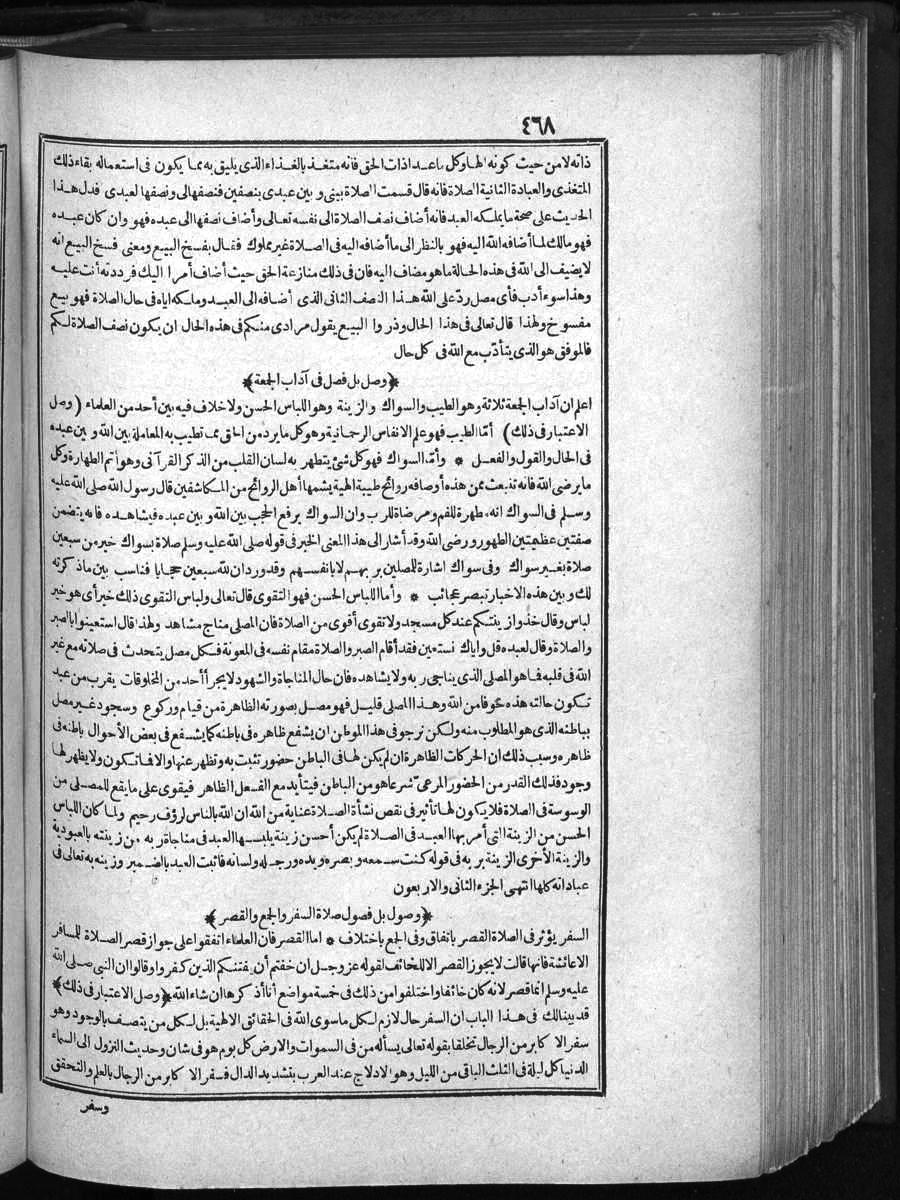 ٤٦٨
ذاته لا من حيث كونه الها وكل ما عدا ذات الحق فانه متغذ بالغذاء الذى يليق به مما يكون فى استعماله بقاء ذلك
المتغذى والعبادة الثانية الصلاة فانه قال قسمت الصلاة بينى وبين عبدى بنصفين فنصفها لى ونصفها لعبدى فدل هذا
الحديث على صحة ما يملكه العبد فانه أضاف نصف الصلاة الى نفسه تعالى وأضاف نصفها الى عبده فهو وان كان عبده
فهو مالك لما أضافه الله اليه فهو بالنظر الى ما أضافه اليه فى الصلاة غير مملوك فقال بفسخ البيع ومعنى فسخ البيع انه
لا يضيف الى الله فى هذه الحالة ما هو مضاف اليه فان فى ذلك منازعة الحق حيث أضاف أمرا اليك فرددته أنت عليه
وهذا سوء أدب فأى مصل رد على الله هذا النصف الثانى الذى أضافه الى العبد وملكه اياه فى حال الصلاة فهو بيع
مفسوخ ولهذا قال تعالى فى هذا الحال وذروا البيع يقول مرادى منكم فى هذه الحال ان يكون نصف الصلاة لكم
فالموفق هو الذى يتأدب مع الله فى كل حال
﴿وصل بل فصل فى آداب الجمعة﴾
اعلم ان آداب الجمعة ثلاثة وهو الطيب والسواك والزينة وهو اللباس الحسن ولا خلاف فيه بين أحد من العلماء (وصل
الاعتبار فى ذلك) أما الطيب فهو علم الانفاس الرحمانية وهو كل ما يرد من الحق مما تطيب به المعاملة بين الله وبين عبده
فى الحال والقول والفعل * وأما السواك فهو كل شئ يتطهر به لسان القلب من الذكر القرآنى وهو أتم الطهارة وكل
ما يرضى الله فانه تنبعث ممن هذه أوصافه روائح طيبة الهية يشمها أهل الروائح من المكاشفين قال رسول الله صلى الله عليه
وسلم فى السواك انه مطهرة للفم ومرضاة للرب وان السواك يرفع الحجب بين الله وبين عبده فيشاهده فانه يتضمن
صفتين عظيمتين الطهور ورضى الله وقد أشار الى هذا المعنى الخبر فى قوله صلى الله عليه وسلم صلاة بسواك خير من سبعين
صلاة بغير سواك وفى سواك اشارة للمصلين بربهم لا بانفسهم وقد ورد ان لله سبعين حجابا فناسب بين ما ذكرته
لك وبين هذه الاخبار تبصر عجائب * وأما اللباس الحسن فهو التقوى قال تعالى ولباس التقوى ذلك خير أى هو خير
لباس وقال خذوا زينتكم عند كل مسجد ولا تقوى أقوى من الصلاة فان المصلى مناج مشاهد ولهذا قال استعينوا بالصبر
والصلاة وقال لعبده قل واياك نستعين فقد أقام الصبر والصلاة مقام نفسه فى المعونة فكل مصل يتحدث فى صلاته مع غير
الله فى قلبه فما هو المصلى الذى يناجى ربه ولا يشاهده فان حال المناجاة والشهود لا يجرأ أحد من المخلوقات يقرب من عبد
تكون حالته هذه خوفا من الله وهذا المصلى قليل فهو مصل بصورته الظاهرة من قيام وركوع وسجود غير مصل
بباطنه الذى هو المطلوب منه ولكن نرجو فى هذا الموطن ان يشفع ظاهره فى باطنه كما يشفع فى بعض الأحوال باطنه فى
ظاهره وسبب ذلك ان الحركات الظاهرة ان لم يكن لها فى الباطن حضور تثبت به وتظهر عنها والا فما تكون ولا يظهر لها
وجود فذلك القدر من الحضور المرعى شرعا هو من الباطن فيتأيد مع الفعل الظاهر فيقوى على ما يقع للمصلى من
الوسوسة فى الصلاة فلا يكون لها تأثير فى نقص نشأة الصلاة عناية من الله ان الله بالناس لرؤف رحيم ولما كان اللباس
الحسن من الزينة التى أمر بها العبد فى الصلاة لم يكن أحسن زينة يلبسها العبد فى مناجاة ربه من زينته بالعبودية
والزينة الأخرى الزينة بربه فى قوله كنت سمعه وبصره ويده ورجله ولسانه فاثبت العبد بالضمير وزينه به تعالى فى
عباداته كلها انتهى الجزء الثانى والاربعون
﴿وصول بل فصول صلاة السفر والجمع والقصر﴾
السفر يؤثر فى الصلاة القصر باتفاق وفى الجمع باختلاف * اما القصر فان العلماء اتفقوا على جواز قصر الصلاة للمسافر
الا عائشة فانها قالت لا يجوز القصر الا للخائف لقوله عز وجل ان خفتم أن يفتنكم الذين كفروا وقالوا ان النبى صلى الله
عليه وسلم انما قصر لانه كان خائفا واختلفوا من ذلك فى خمسة مواضع أنا أذكرها ان شاء الله ﴿وصل الاعتبار فى ذلك﴾
قد بينا لك فى هذا الباب ان السفر حال لازم لكل ما سوى الله فى الحقائق الالهية بل لكل من يتصف بالوجود وهو
سفر الاكابر من الرجال تخلقا بقوله تعالى يسأله من فى السموات والارض كل يوم هو فى شان وحديث النزول الى السماء
الدنيا كل ليلة فى الثلث الباقى من الليل وهو الادلاج عند العرب بتشديد الدال فسفر الاكابر من الرجال بالعلم والتحقق
وسفر